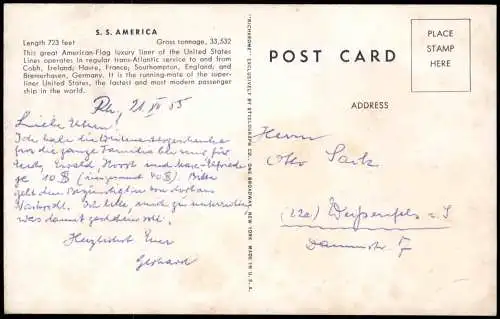 S. S. AMERICA
Length 723 feet Gross tonnage, 33,532
This great American-Flag luxury liner of the United States
Lines operates in regular trans-Atlantic service to and from
Cobh, Ireland; Havre, France; Southampton, England; and
Bremerhaven, Germany. It is the running-mate of the super-
liner United States, the fastest and most modern passenger
ship in the world.
21 IV 55
Liebe Eltern!
Ich habe die
für die ganze Familie für
Ewald, Horst und
je 10 $ (insgesamt 40 $). Bitte
geht den von dort aus
Ich bitte auch zu
was damit geschehen soll.
Herzlichst Euer
Gerhard
"MIRROCHROME" EXCLUSIVELY BY STEELOGRAPH CO., ONE BROADWAY, NEW YORK MADE IN U.S.A.
POST CARD
PLACE
STAMP
HERE
ADDRESS
Herrn
Otto
(22a) Weißenfels a. S
Dammstr 7